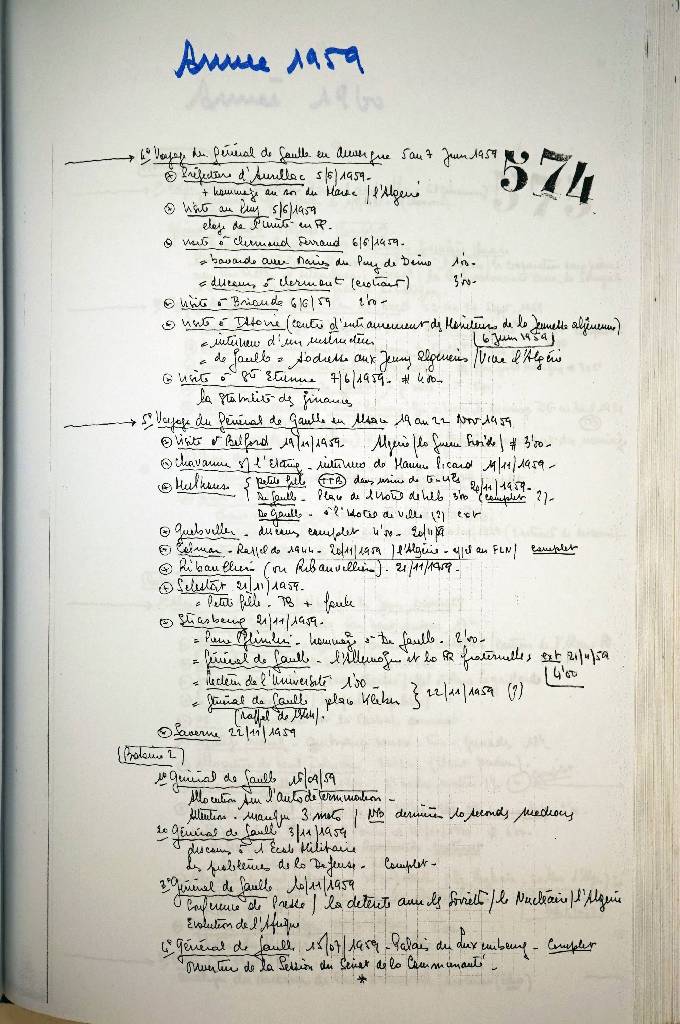 Année 1959
574
4° Voyage du Général de Gaulle en Auvergne 5 au 7 Juin 1959
Préfecture d'Aurillac 5/6/1959-
+ hommage au roi du Maroc / l'Algérie
Visite au Puy 5/6/1959
éloge de l'unité en
Visite à Clermond Ferrand 6/6/1959-
= bavarde avec Maires du Puy de Dôme 1'00-
= discours à Clermont (extrait) 3'00-
Visite à Brioude 6/6/59 2'00-
Visite à Issoire (centre d'entrainement des Moniteurs de la Jeunesse algérienne)
= interview d'un instructeur 6 Juin 1959
= de Gaulle = s'adresse aux Jeunes algériens / Vive l'Algérie
Visite à St Etienne 7/6/1959- # 4'00-
la stabilité des finances
5° Voyage du Général de Gaulle en Alsace 19 au 22 Nov 1959
Visite à Belfort 19/11/1959. Algérie / la Guerre Froide / # 3'00-
Chavanne s/ l'Etang - interview de Picard 19/11/1959-
Mulhouse petite fille TTB dans usine de 20/11/1959-
De Gaulle - Place de l'Hotel de Ville 3'00 (complet ?)-
De Gaulle - à l'Hotel de Ville (?) ext
Guebviller - discours complet 4'00- 20/11/59
Colmar - Rappel de 1944 - 20/11/1959 / l'Algérie - appel au FLN / complet
Ribauvillers (ou Ribeauvillers). 21/11/1959-
Selestat 21/11/1959-
= Petite fille - TB + foule
Strasbourg 21/11/1959-
= Pierre Pflimlin - hommage à De Gaulle - 2'00-
= Général de Gaulle - l'Allemagne et la fraternelles ext 21/11/59
4'00
= Recteur de l'Université 1'00
= Général de Gaulle place Kleber } 22/11/1959 (?)
(rappel de 1944).
Saverne 22/11/1959
(Bobine 2)
1° Général de Gaulle 16/09/59
Allocution sur l'autodétermination-
Attention - manque 3 mots / NB dernières 10 secondes
2° Général de Gaulle 3/11/1959
discours à l'Ecole Militaire
Les problèmes de la Défense - Complet-
3° Général de Gaulle 10/11/1959
Conférence de Presse / la détente avec les Soviets / le Nucléaire / l'Algérie
Evolution de l'Afrique
4° Général de Gaulle 15/07/1959 - Palais du Luxembourg - Complet
Ouverture de la Session du Sénat de la Communauté-
*